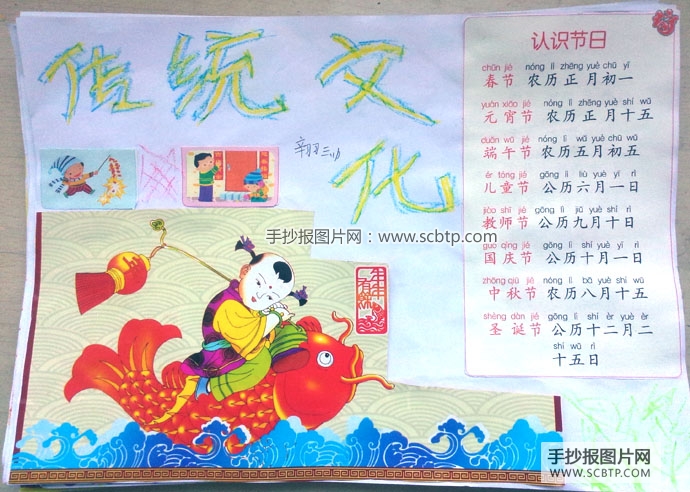 传统文化
认识节日
chūn jié nóng lì zhēng yuè chū yī
春节 农历正月初一
yuán xiāo jié nóng lì zhēng yuè shí wǔ
元宵节 农历正月十五
duān wǔ jié nóng lì wǔ yuè chū wǔ
端午节 农历五月初五
ér tóng jié gōng lì liù yuè yī rì
儿童节 公历六月一日
jiào shī jié gōng lì jiǔ yuè shí rì
教师节 公历九月十日
guó qìng jié gōng lì shí yuè yī rì
国庆节 公历十月一日
zhōng qiū jié nóng lì bā yuè shí wǔ
中秋节 农历八月十五
shèng dàn jié gōng lì shí èr yuè èr
圣诞节 公历十二月二
shí wǔ rì
十五日
手抄报图片网:www.scbtp.com
手抄报图片网
WWW.SCBTP.COM